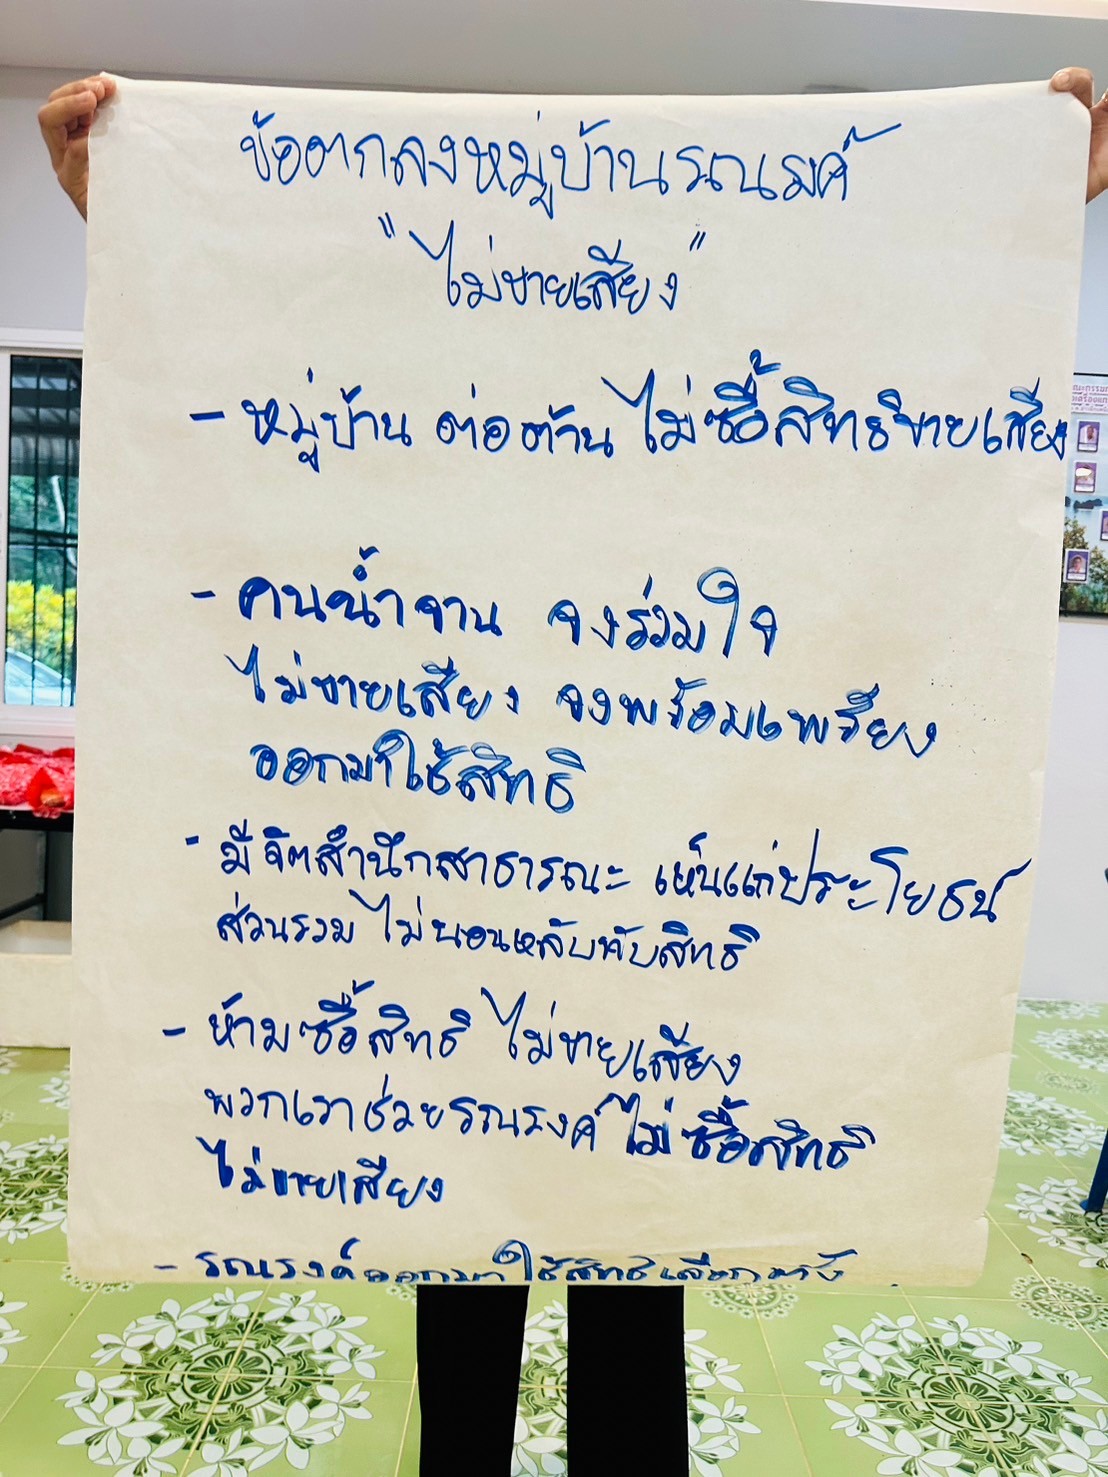 ข้อตกลงหมู่บ้านรณรงค์
"ไม่ขายเสียง"
- หมู่บ้าน ต่อต้าน ไม่ซื้อสิทธิขายเสียง
- คนน้ำจาน จงร่วมใจ
ไม่ขายเสียง จงพร้อมเพรียง
ออกมาใช้สิทธิ
- มีจิตสำนึกสาธารณะ เห็นแก่ประโยชน์
ส่วนรวม ไม่นอนหลับทับสิทธิ
- ห้ามซื้อสิทธิ ไม่ขายเสียง
พวกเราช่วยรณรงค์ ไม่ซื้อสิทธิ
ไม่ขายเสียง
- รณรงค์ออกมาใช้สิทธิเลือกตั้ง